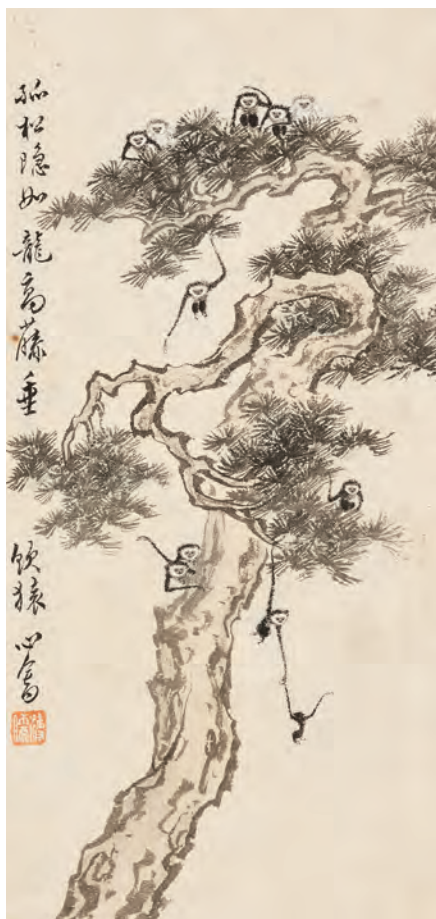 孤松隐如龍高藤垂飲猿 心畬
溥儒